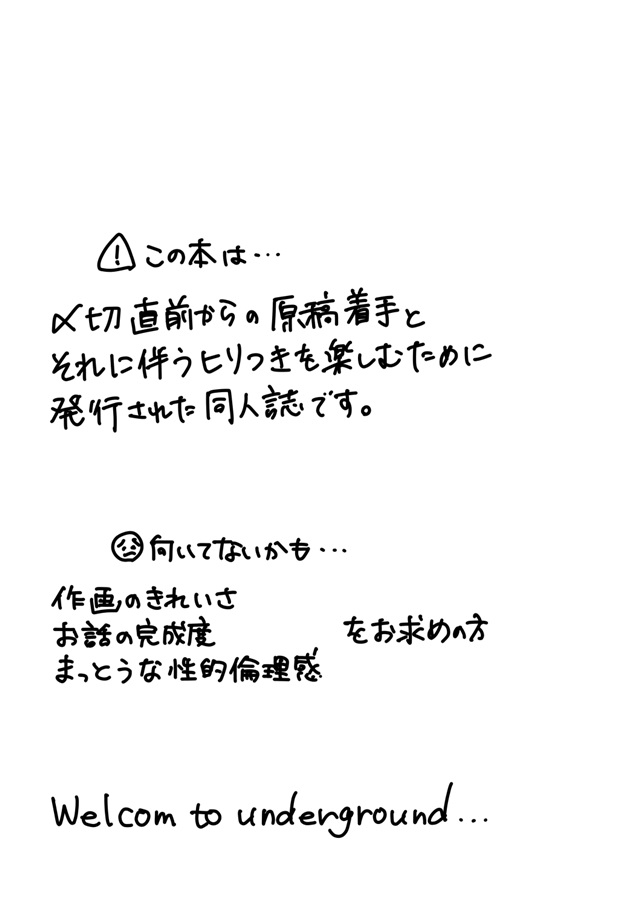 この本は…
〆切直前からの原稿着手と
それに伴うヒリつきを楽しむために
発行された同人誌です。
向いてないかも…
作画のきれいさ
お話の完成度
まっとうな性的倫理感
をお求めの方
Welcom to underground...